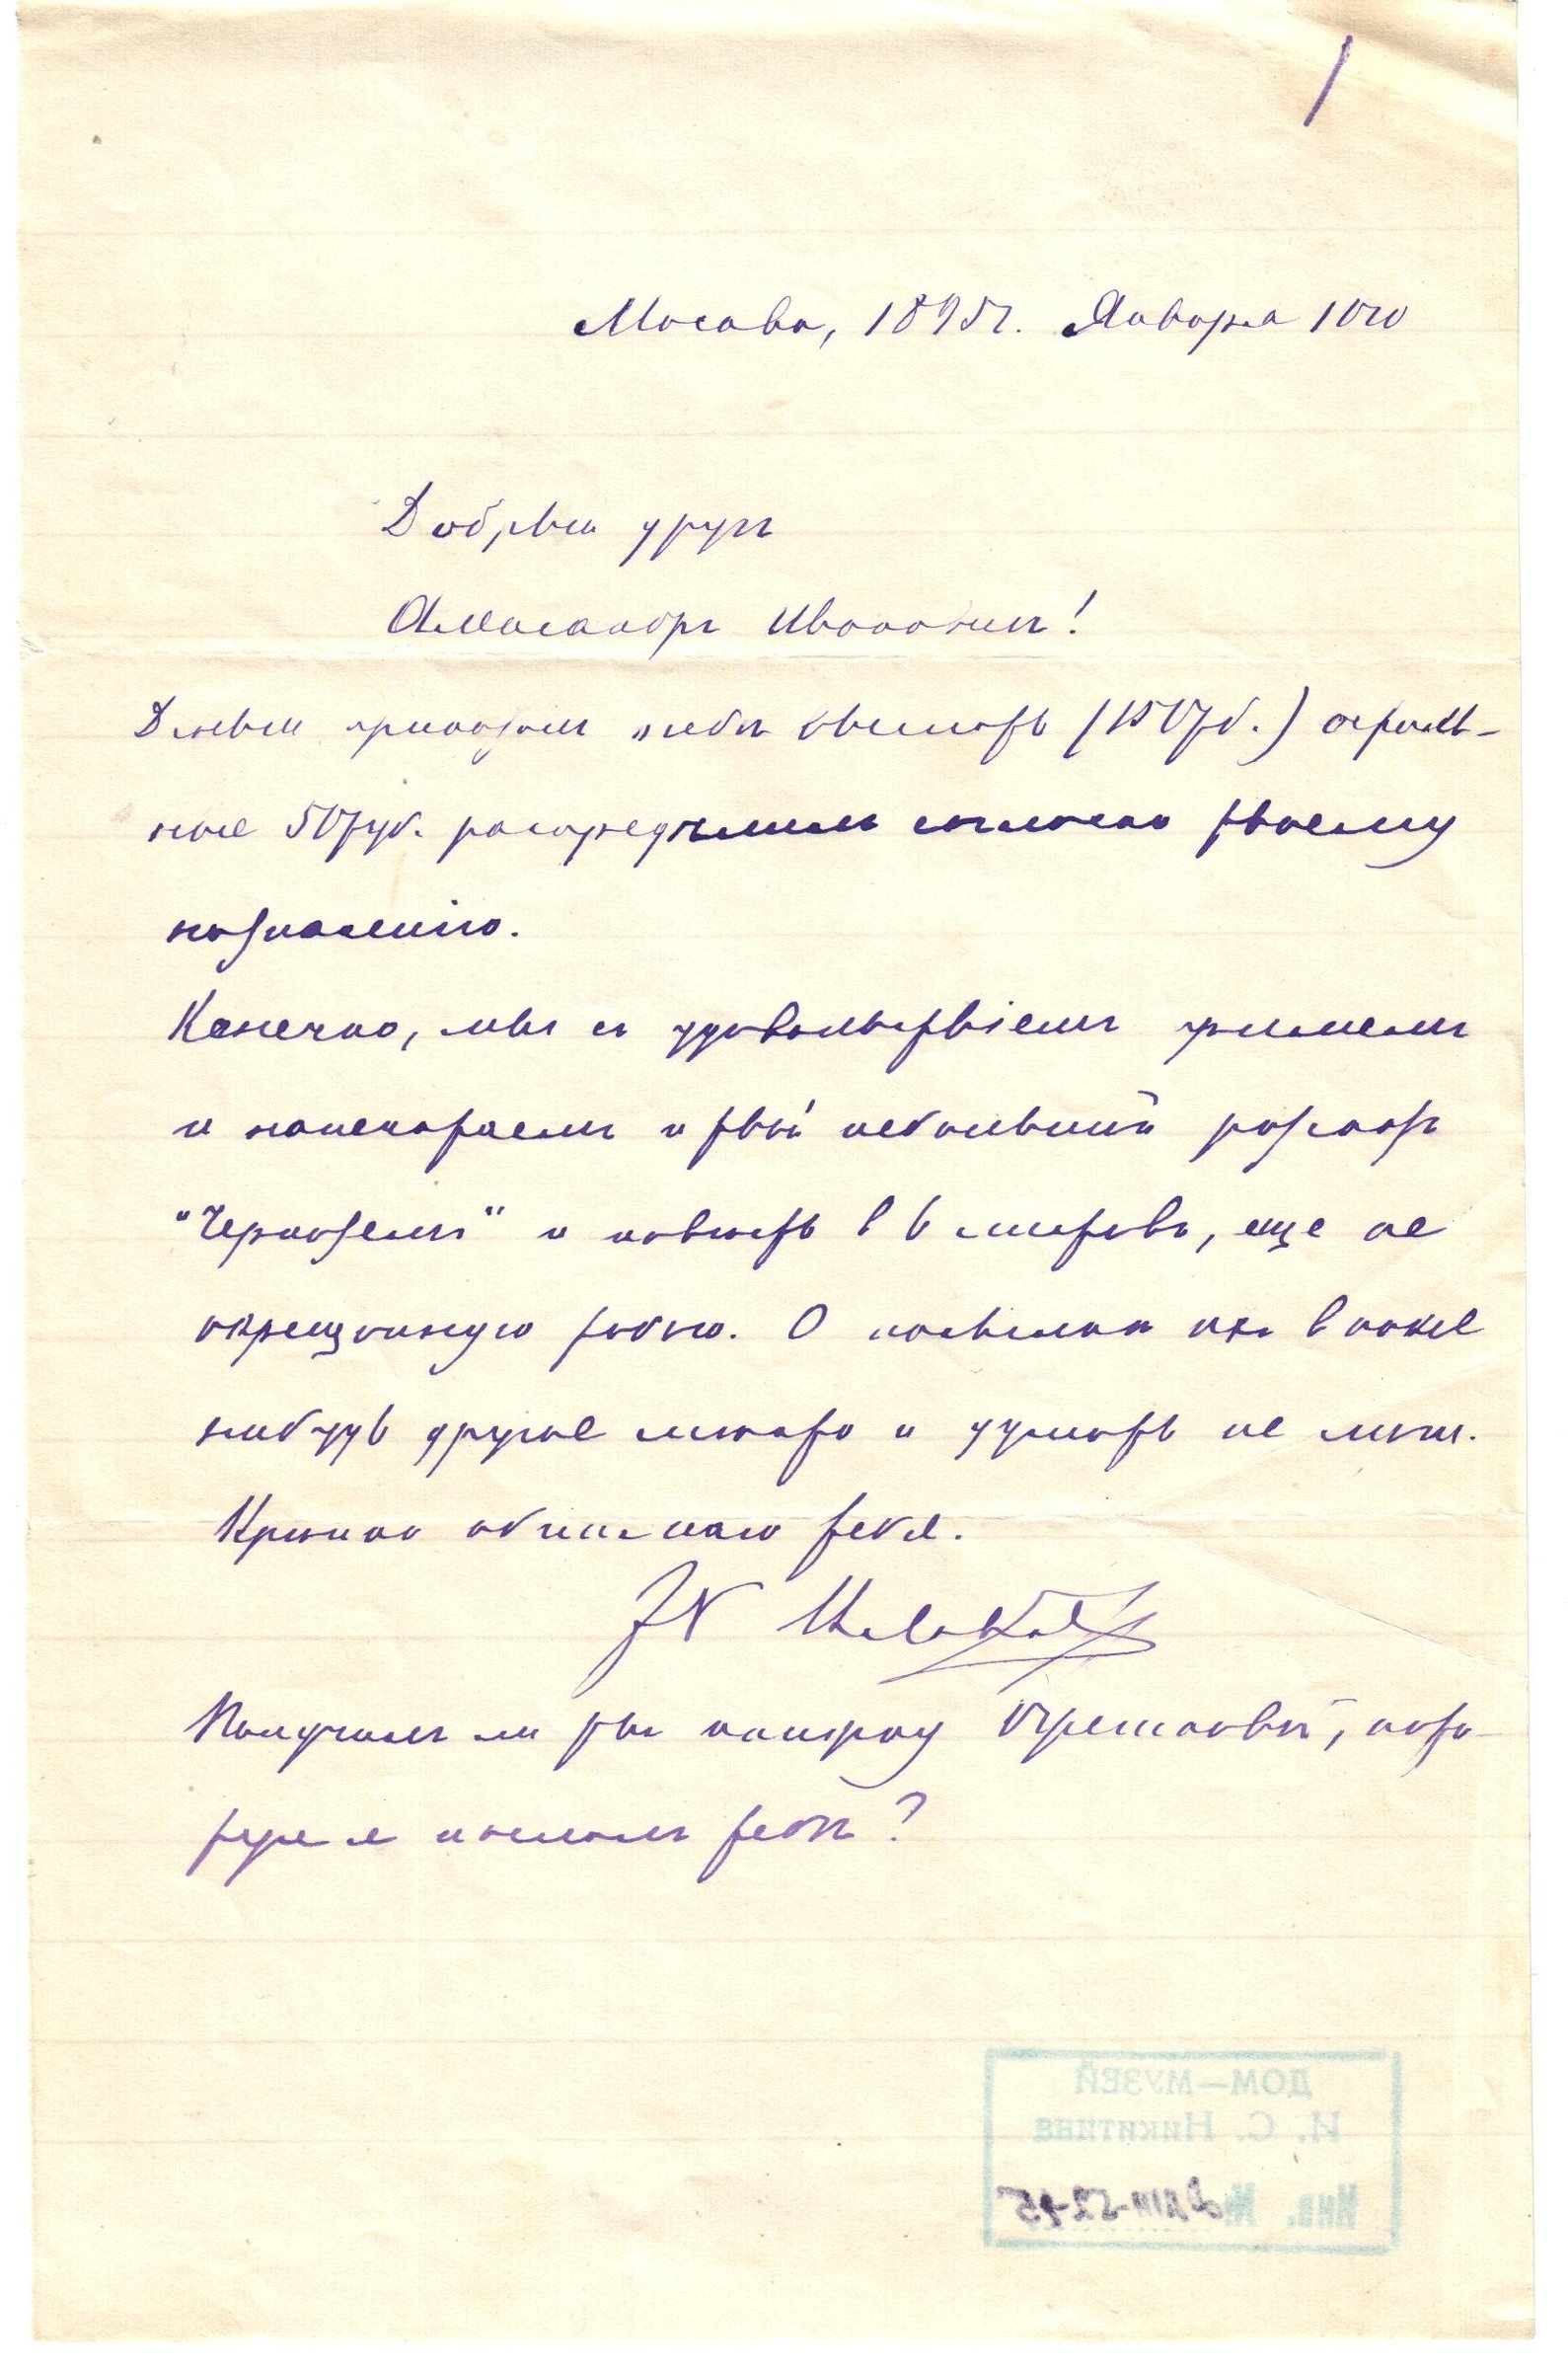 Москва, 1895г. Января 10го
Добрый другъ
Александръ Ивановичъ!
Деньги приказалъ тебѣ выслать (150рб.) осталь-
ные 50руб. распредѣлилъ согласно твоему
назначенію.
Конечно, мы съ удовольствіемъ примемъ
и напечатаемъ и твой небольшой разсказъ
"Черноземъ" и повесть въ 6 листовъ, еще не
окрещенную тобою. О посылкѣ ихъ в какое
нибудь другое место и думать не моги.
Крепко обнимаю тебя.
Получилъ ли ты книгу, кото-
рую я послалъ тебѣ?
ДОМ—МУЗЕЙ
И. С. Никитина
Инв. №